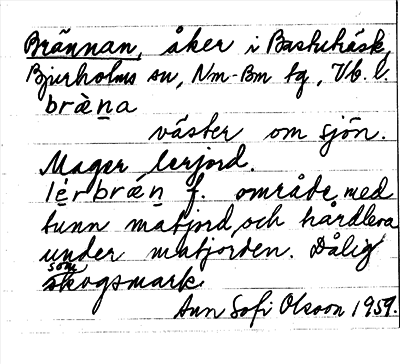 Brännan, åker i Bastuträsk,
Bjurholms sn, Nm-Bm tg, Vb. l.
bràn̲a
väster om sjön.
Mager lerjord.
lérbràn̲ f. område med
tunn matjord och hårdlera
under matjorden. Dålig
som
skogsmark.
Ann Sofi Olsson 1959.